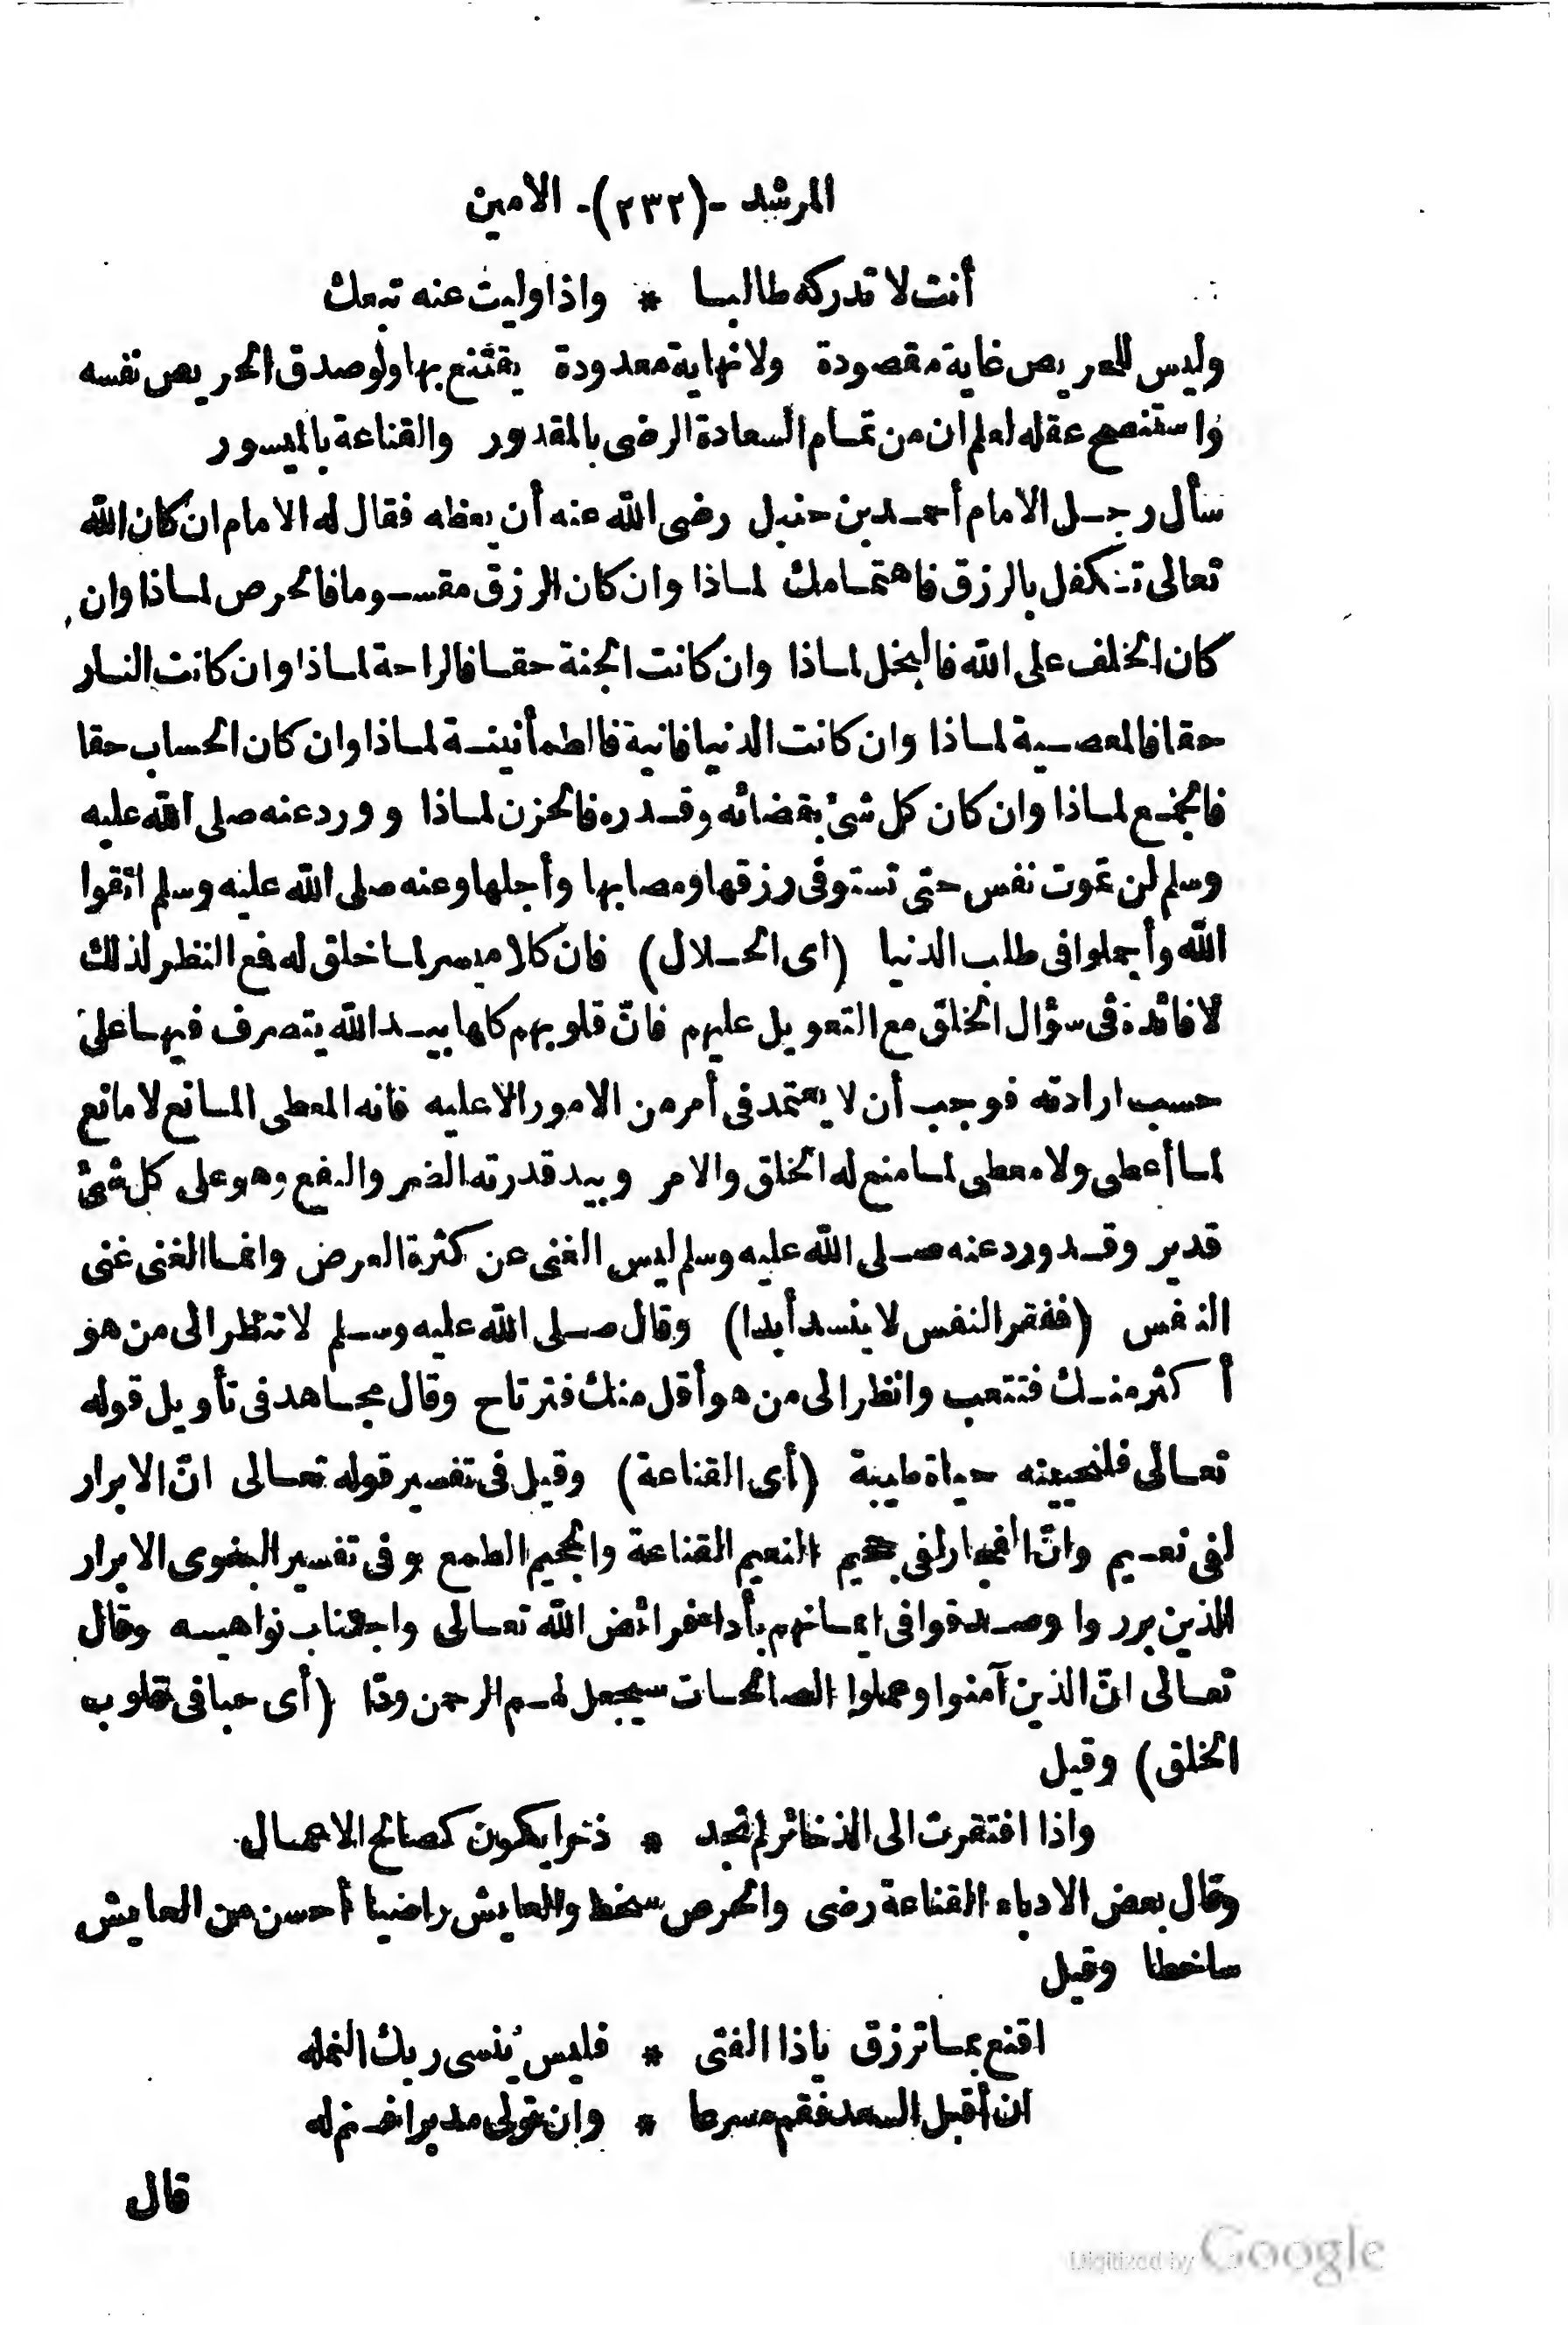 المرشد -(٢٣٢)- الامين
أنت لا تدركه طالبا * واذا وليت عنه تبعك
وليس للحريص غاية مقصودة ولا نهاية معدودة يقتنع بها ولو صدق الحريص نفسه
واستنصح عقله لعلم ان من تمام السعادة الرضى بالمقدور والقناعة بالميسور
سأل رجل الامام أحمد بن حنبل رضى الله عنه أن يعظه فقال له الامام ان كان الله
تعالى تكفل بالرزق فاهتمامك لماذا وان كان الرزق مقسوما فالحرص لماذا وان
كان الخلف على الله فالبخل لماذا وان كانت الجنة حقا فالراحة لماذا وان كانت النار
حقا فالمعصية لماذا وان كانت الدنيا فانية فالطمأنينة لماذا وان كان الحساب حقا
فالجمع لماذا وان كان كل شئ بقضائه وقدره فالحزن لماذا وورد عنه صلى الله عليه
وسلم لن تموت نفس حتى تستوفى رزقها ومصابها وأجلها وعنه صلى الله عليه وسلم اتقوا
الله وأجملوا فى طلب الدنيا (اى الحلال) فان كلا ميسر لما خلق له فمع النظر لذلك
لا فائدة فى سؤال الخلق مع التعويل عليهم فانّ قلوبهم كلها بيد الله يتصرف فيها على
حسب ارادته فوجب أن لا يعتمد فى أمر من الامور الا عليه فانه المعطى المانع لا مانع
لما أعطى ولا معطى لما منع له الخلق والامر وبيد قدرته الضر والنفع وهو على كل شئ
قدير وقد ورد عنه صلى الله عليه وسلم ليس الغنى عن كثرة العرض وانما الغنى غنى
النفس (ففقر النفس لا ينسد أبدا) وقال صلى الله عليه وسلم لا تنظر الى من هو
أكثر منك فتتعب وانظر الى من هو أقل منك فترتاح وقال مجاهد فى تأويل قوله
تعالى فلنحيينه حياة طيبة (أى القناعة) وقيل فى تفسير قوله تعالى انّ الابرار
لفى نعيم وانّ الفجار لفى جحيم النعيم القناعة والجحيم الطمع وفى تفسير البغوى الابرار
الذين برروا وصدقوا فى ايمانهم بأداء فرائض الله تعالى واجتناب نواهيه وقال
تعالى انّ الذين آمنوا وعملوا الصالحات سيجعل لهم الرحمن ودّا (أى حبا فى قلوب
الخلق) وقيل
واذا افتقرت الى الذخائر لم تجد * ذخرا يكون كصالح الاعمال
وقال بعض الادباء القناعة رضى والحرص سخط والعايش راضيا أحسن من العايش
ساخطا وقيل
اقنع بما ترزق ياذا الفتى * فليس ينسى ربك النمله
ان أقبل السعد فقم مسرعا * وان تولى مدبرا نم له
قال
Digitized by Google